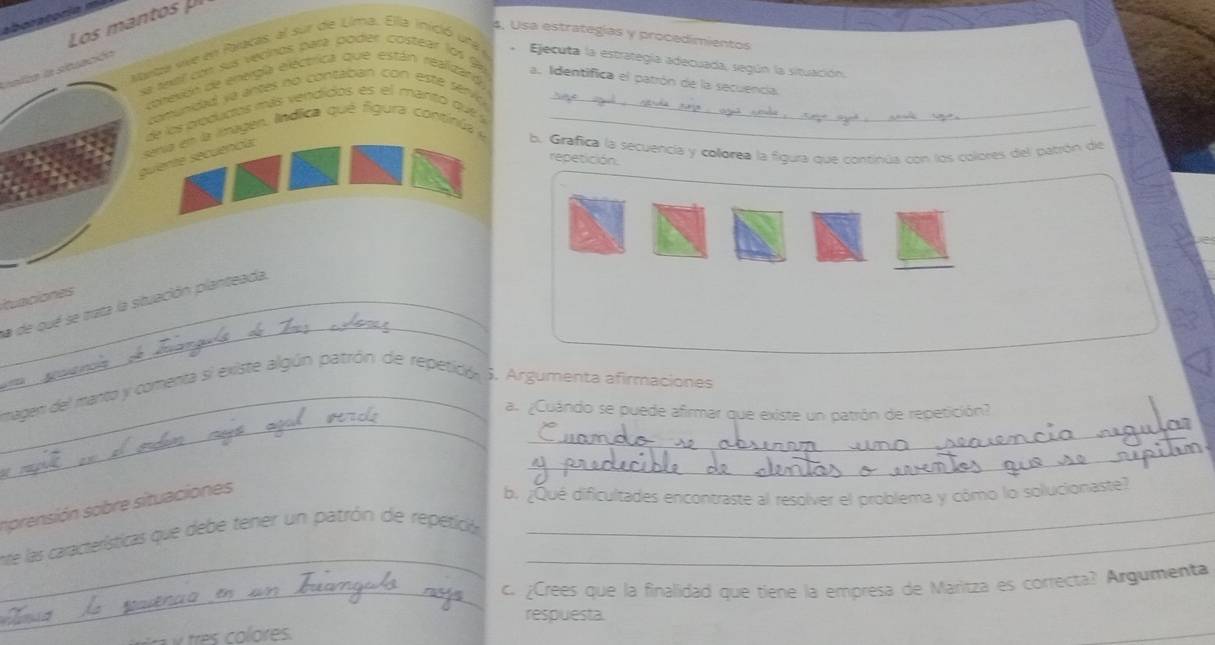 Los mantos
Maritza vive en Paracas, al sur de Lima. Ella inició una
sa textil con sus vecinos para poder costear los
conexión de energía eléctrica que están realizando
comunidad, ya antes no contaban con este servicio
de los productos más vendidos es el manto que
serva en la imagen. Indica qué figura continúa
guiente secuencia:
ituaciones
de qué se trata la situación planteada.
secuencia de Triangulo de Tres colores
magen del manto y comenta si existe algún patrón de repetición
se repite en el orden rojo azul verde
mprensión sobre situaciones
nte las características que debe tener un patrón de repetición
la secuencia en un Triangulo rojo
y tres colores.
4. Usa estrategias y procedimientos
• Ejecuta la estrategia adecuada, según la situación.
a. Identifica el patrón de la secuencia.
b. Grafica la secuencia y colorea la figura que continúa con los colores del patrón de
repetición.
5. Argumenta afirmaciones
a. ¿Cuándo se puede afirmar que existe un patrón de repetición?
Cuando se observan una secuencia regular
y predecible de elentos o eventos que se repiten.
b. ¿Qué dificultades encontraste al resolver el problema y cómo lo solucionaste?
c. ¿Crees que la finalidad que tiene la empresa de Maritza es correcta? Argumenta
respuesta.